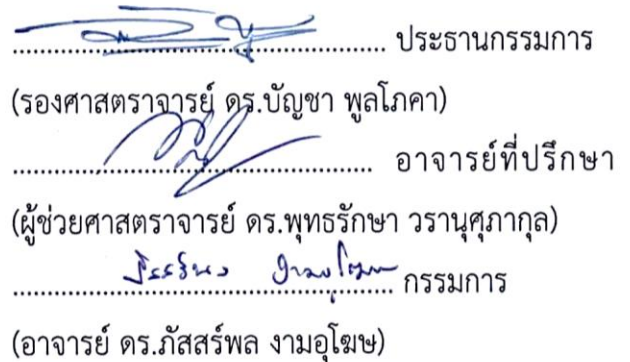 ประธานกรรมการ
(รองศาสตราจารย์ ดร.บัญชา พูลโภคา)
อาจารย์ที่ปรึกษา
(ผู้ช่วยศาสตราจารย์ ดร.พุทธรักษา วรานุศุภากุล)
กรรมการ
(อาจารย์ ดร.ภัสสร์พล งามอุโฆษ)